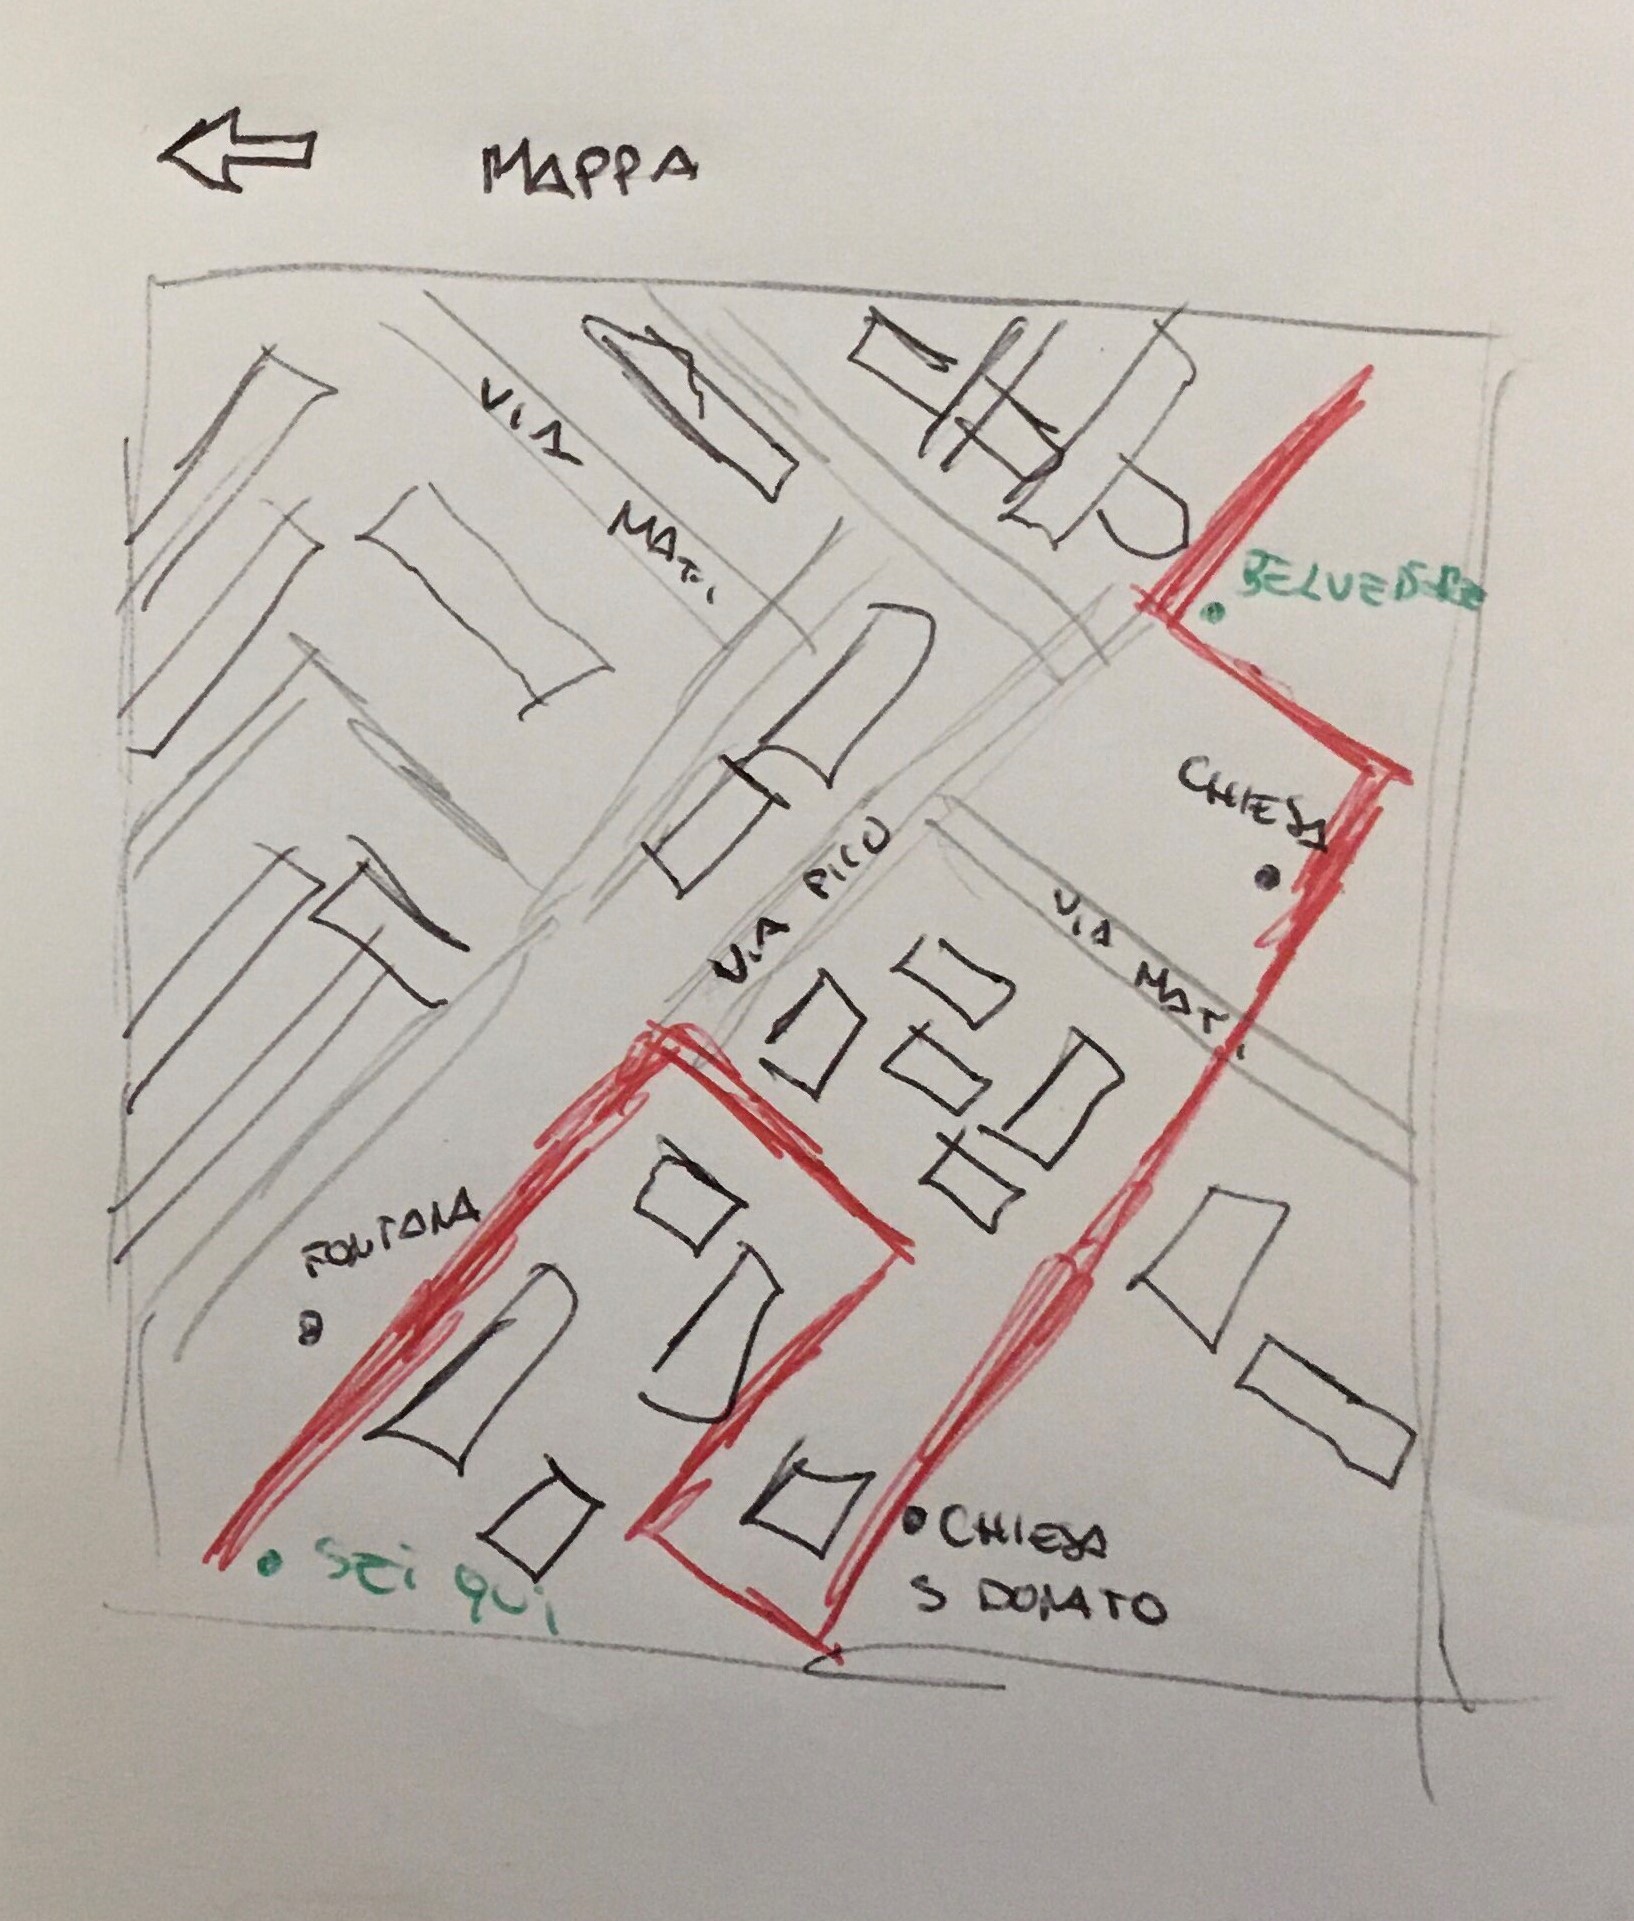 MAPPA
VIA
MAT.
BELVEDERE
CHIESA
VIA PICO
VIA
MAT.
FONTANA
8
SEI QUI
CHIESA
S DONATO